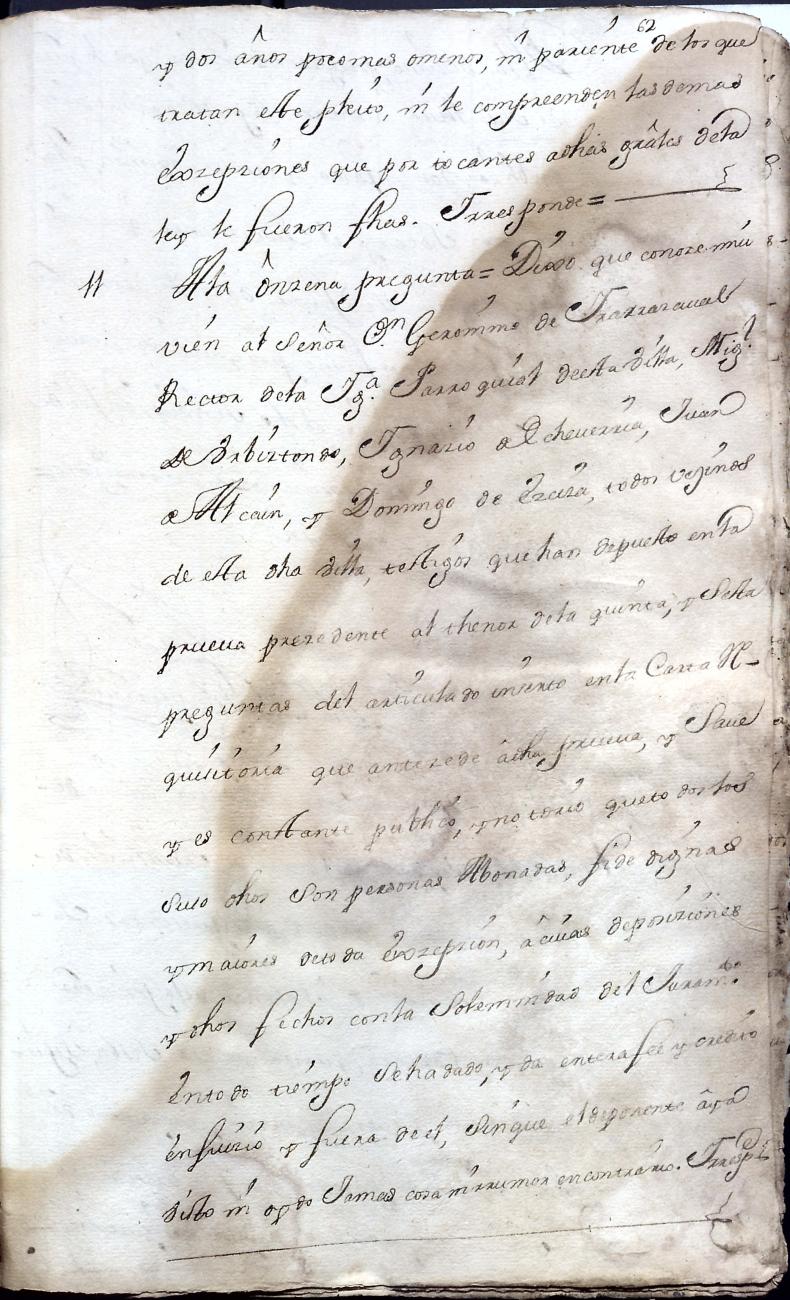 62
y dos años pocomas omenos, ni pariente de los que
tratan este pleito, ni le compreenden las demas
exzepciones que por tocantes adhas grâles dela
ley le fueron fhas. Yrresponde=
11 Ala ônzena pregunta= Dixo que conoze mui
vien al Señor Dn Geronimo de Yrarrazaual
Rector dela Yga. Parroquial deesta Villa, Migl.
de Vrbiztondo, Ygnazio de Echeverria, Juan
de Alcain, y Domingo de Ezeiza, todos vezinos
de esta dha Villa, testigos que han depuesto enla
prueua prezedente al thenor dela quinta, y Sesta
preguntas del articulado inserto enla Carta Re-
quisitoria que antezede âdha prueua, y Saue
y es constante publico, y notorio que todos los
suso dhos son personas Abonadas, fidedignas
y maiores detoda exzepzion, âcuias deposiziones
y dhos fechos conla Solemnidad del Juramto.
entodo tiempo sehadado, y da enterafee y credito
enjuizio y fuera deel, sinque eldeponente âya
visto ni oydo Jamas cosa nirrumor encontrario. Yrrespde